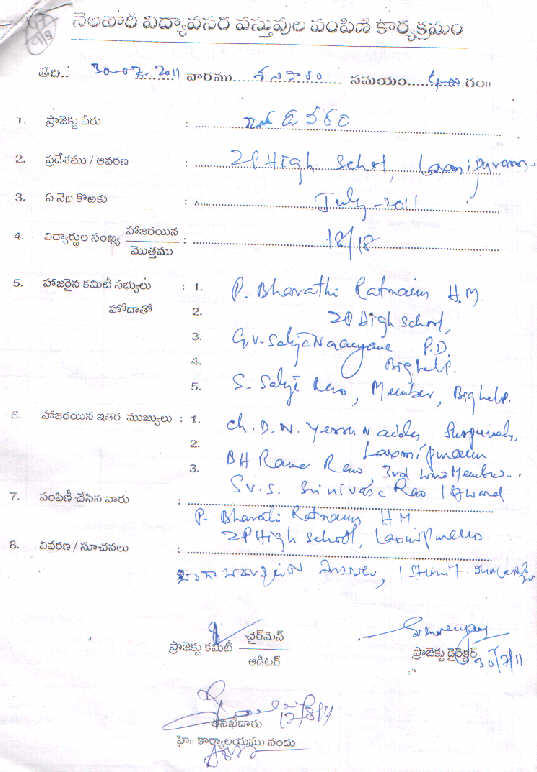 నెలవారి విద్యావసర వస్తువుల పంపిణి కార్యక్రమం
తేది.: 30-07-2011 వారము.... శనివారం సమయం.... గం॥
1. ప్రాజెక్టు పేరు :
2. ప్రదేశము / ఆవరణ : ZP High School, Laxmipuram
3. ఏ నెల కొఱకు : July-2011
4. విద్యార్థుల సంఖ్య హాజరయిన / మొత్తము : 18/18
5. హాజరైన కమిటీ సభ్యులు : 1. P. Bharathi Ratnam H.M
హోదాతో 2. ZP High School,
3. G.V. Satya Narayana P.D
4. Bighelp.
5. S. Satya Rao, Member, Bighelp.
6. హాజరయిన ఇతర ముఖ్యులు : 1. Ch. D. N. Yerru Naidu
2. Laxmipuram
3. BH Rama Rao 3rd Ward Member..
S.V.S. Srinivasa Rao 1st Ward
7. పంపిణీ చేసిన వారు :
P. Bharati Ratnam HM
ZP High School, Laxmipuram
8. వివరణ / సూచనలు :
ప్రాజెక్టు కమిటీ చైర్‌మెన్ / ఆడిటర్
ప్రాజెక్టు డైరెక్టర్ 30/7/11
తనిఖీదారు
హె॥ కార్యాలయము నందు